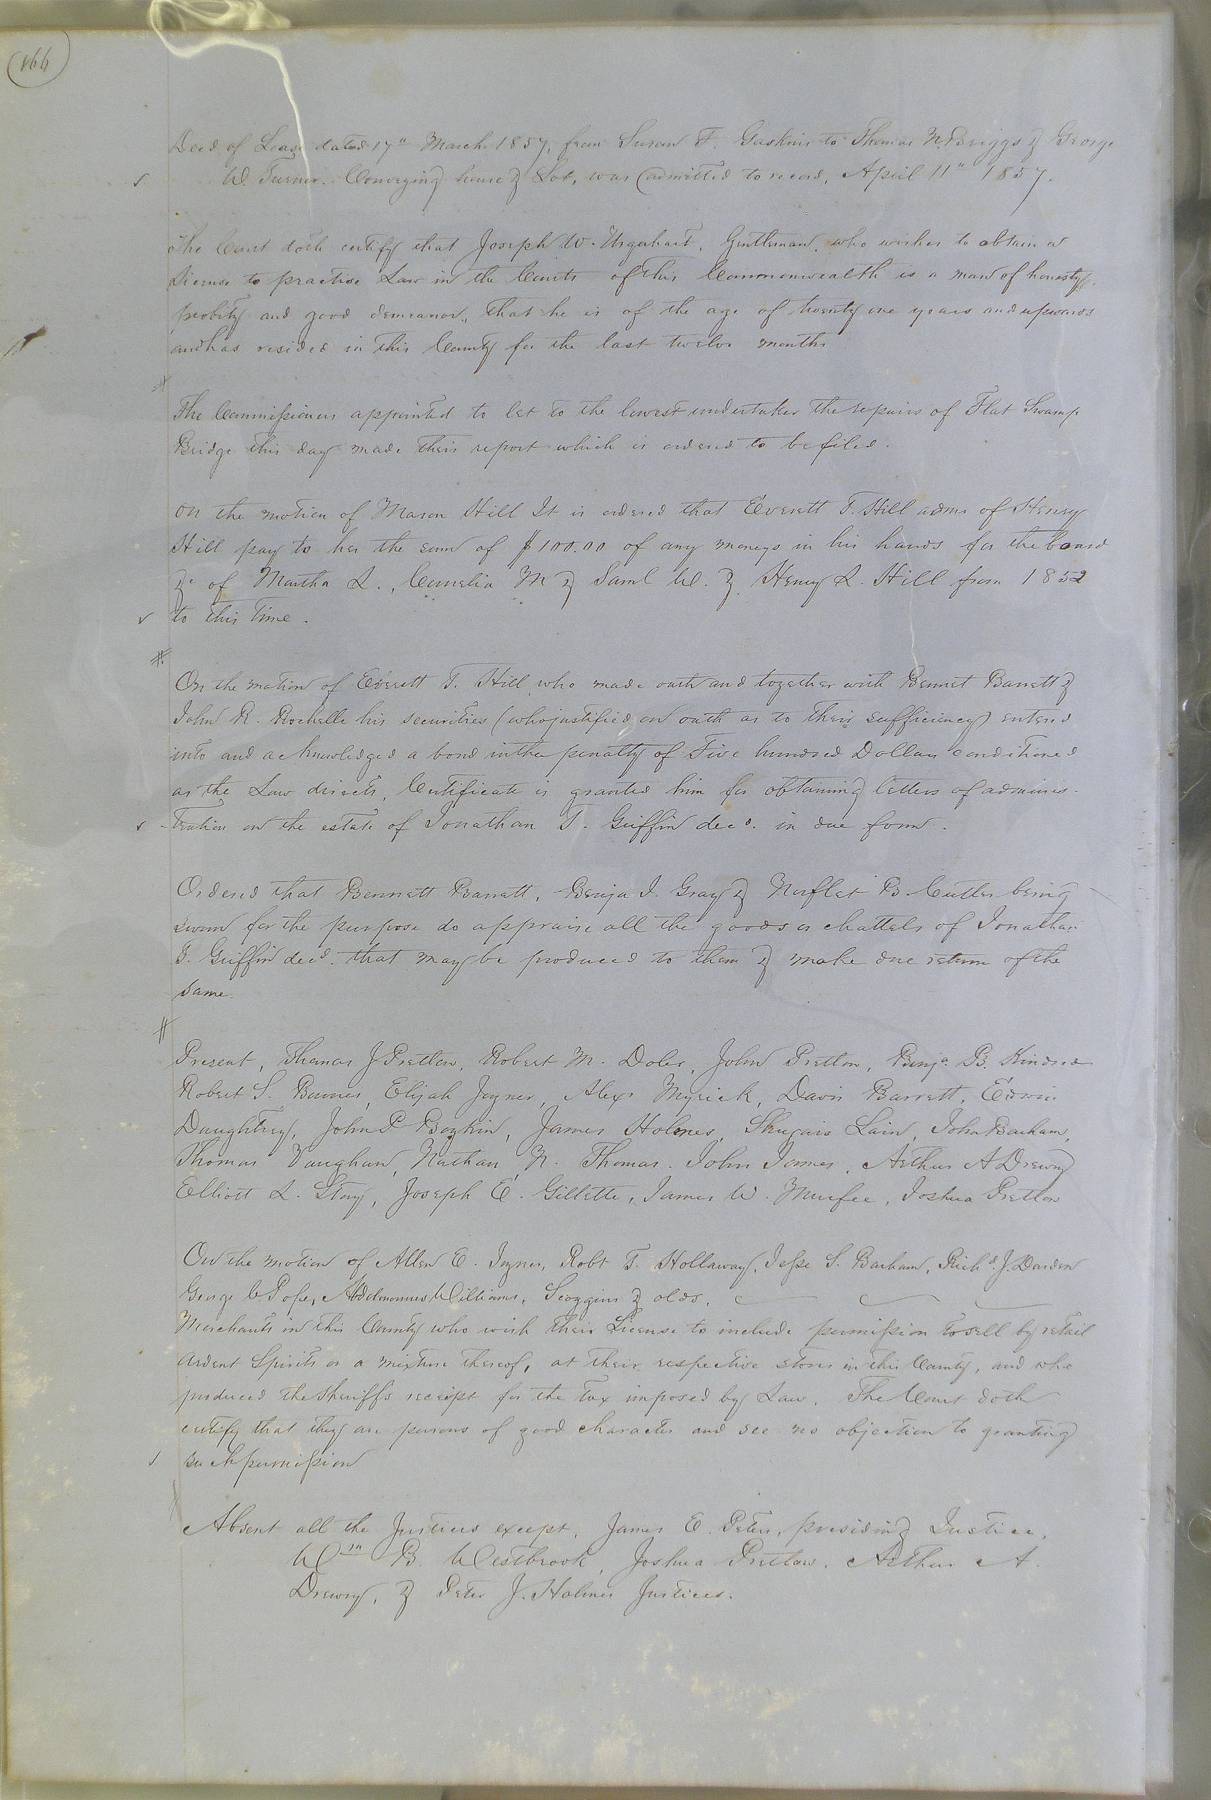 166
Deed of Lease dated 17" March 1857, from Susan F. Gaskins to Thomas N. Briggs & George
W Turner. Conveying house & Lot, was admitted to record, April 11" 1857.
The Court doth certify that Joseph W. Urquhart, Gentleman, who wishes to obtain a
License to practice Law in the Courts of this Commonwealth is a man of honesty,
probity and good demeanor, that he is of the age of twenty one years and upwards
and has resided in this County for the last twelve months
The Commissioners appointed to let to the lowest undertaker the repairs of Flat Swamp
Bridge this day made their report which is ordered to be filed.
On the motion of Mason Hill It is ordered that Everett T. Hill admr of Henry
Hill pay to her the sum of $100.00 of any moneys in his hands for the board
&c of Martha L., Cornelia M & Saml W. & Henry L. Hill from 1852
to this time.
On the motion of Everett T. Hill who made oath and together with Bennet Barrett &
John R. Rochelle his securities (who justified on oath as to their sufficiency) entered
into and acknowledged a bond in the penalty of Five hundred Dollars conditioned
as the Law directs, Certificate is granted him for obtaining letters of adminis-
tration on the estate of Jonathan T. Griffin decd. in due form.
Ordered that Bennett Barrett, Benja J. Gray & Norflet B. Cutler being
sworn for the purpose do appraise all the goods & chattels of Jonathan
T. Griffin decd. that may be produced to them & make due return of the
same.
Present, Thomas J Pretlow, Robert M. Doles, John Pretlow, Benja. B. Kindred
Robert S. Barnes, Elijah Joyner, Alexr Myrick, Davis Barrett, Edwin
Daughtrey, John P Boykin, James Holmes, Lain, John Barham,
Thomas Vaughan, Nathan N. Thomas. John James, Arthur A Drewry
Elliott L. Story, Joseph E. Gillette, James W. Murfee, Joshua Pretlow
On the motion of Allen E. Joyner, Robt T. Hollaway, Jesse S. Barham, Richd. J. Darden
George C Pope, Williams, Scoggins & olds,
Merchants in this County who wish their License to include permission to sell by retail
ardent Spirits or a mixture thereof, at their respective stores in this County, and who
produced the Sheriffs receipt for the tax imposed by Law. The Court doth
certify that they are persons of good character and see no objection to granting
such permission
Absent all the Justices except, James E. Peters, presiding Justice,
Wm B. Westbrook, Joshua Pretlow, Arthur A.
Drewry, & Peter J. Holmes Justices.